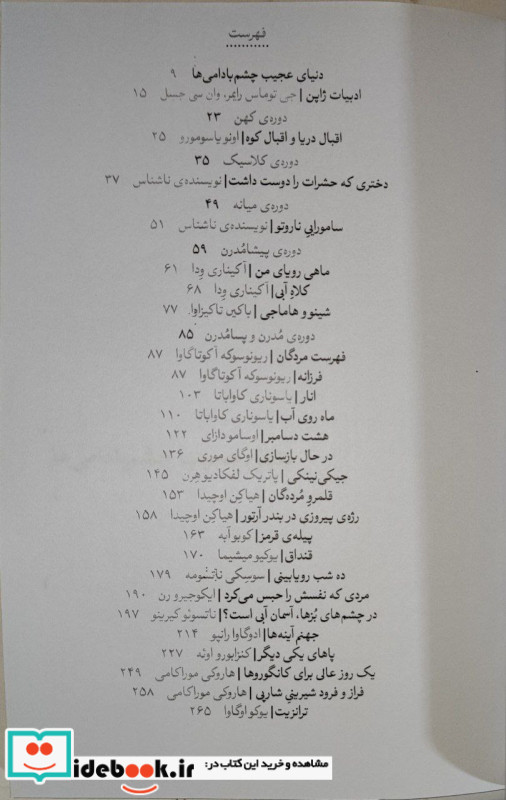 فهرست
دنیای عجیب چشم‌بادامی‌ها ۹
ادبیات ژاپن | جی توماس رایمر، وان سی جسل ۱۵
دوره‌ی کهن ۲۳
اقبال دریا و اقبال کوه | اونو یاسومورو ۲۵
دوره‌ی کلاسیک ۳۵
دختری که حشرات را دوست داشت | نویسنده‌ی ناشناس ۳۷
دوره‌ی میانه ۴۹
سامورایی ناروتو | نویسنده‌ی ناشناس ۵۱
دوره‌ی پیشامُدرن ۵۹
ماهی رویای من | آکیناری وِدا ۶۱
کلاه آبی | آکیناری وِدا ۶۸
شینو و هاماجی | باکین تاکیزاوا. ۷۷
دوره‌ی مُدرن و پسامُدرن ۸۵
فهرست مردگان | ریونوسوکه آکوتاگاوا ۸۷
فرزانه | ریونوسوکه آکوتاگاوا ۸۷
انار | یاسوناری کاواباتا ۱۰۳
ماه روی آب | یاسوناری کاواباتا ۱۱۰
هشت دسامبر | اوسامو دازای ۱۲۲
در حال بازسازی | اوگای موری ۱۳۶
جیکی‌نینکی | پاتریک لفکادیو هِرن ۱۴۵
قلمروِ مُرده‌گان | هیاکِن اوچیدا ۱۵۳
رژه‌ی پیروزی در بندر آرتور | هیاکِن اوچیدا ۱۵۸
پیله‌ی قرمز | کوبو آبه ۱۶۳
قنداق | یوکیو میشیما ۱۷۰
ده شب رویابینی | سوسِکی ناتشومه ۱۷۹
مردی که نفسش را حبس می‌کرد | ایکوجیرو رن ۱۹۰
در چشم‌های بُزها، آسمان آبی است؟ | ناتسوئو کیرینو ۱۹۷
جهنم آینه‌ها | ادوگاوا رانپو ۲۱۴
پاهای یکی دیگر | کنزابورو اوئه ۲۲۷
یک روز عالی برای کانگوروها | هاروکی موراکامی ۲۴۹
فراز و فرود شیرینیِ شاربی | هاروکی موراکامی ۲۵۸
ترانزیت | یوکو اوگاوا ۲۶۵
مشاهده و خرید این کتاب در:
idebook.ir